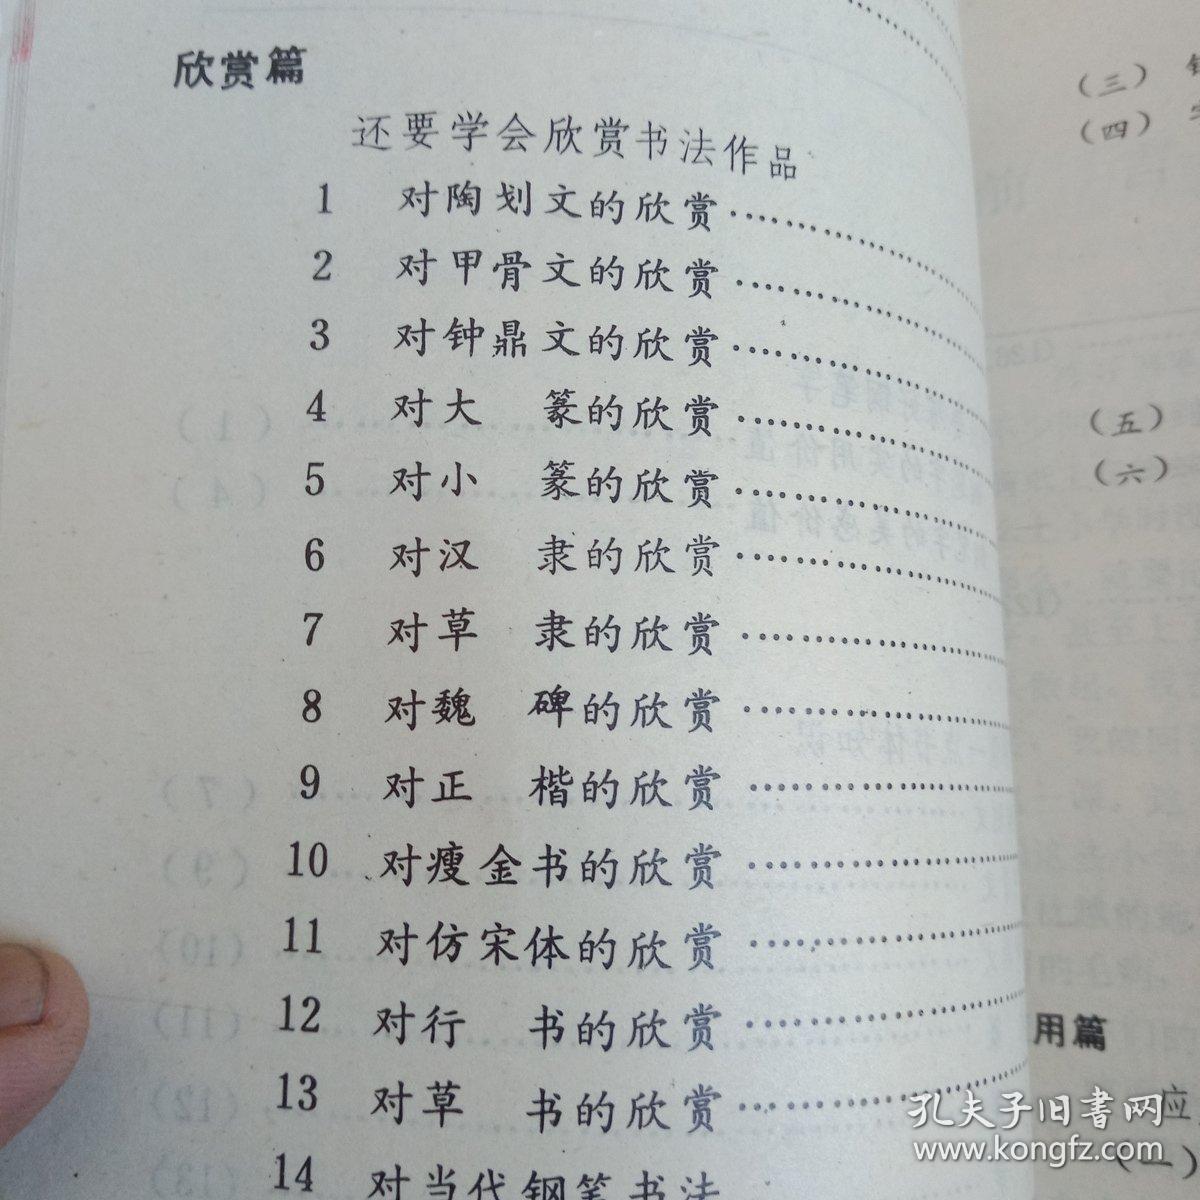 欣赏篇
还要学会欣赏书法作品
1 对陶划文的欣赏
2 对甲骨文的欣赏
3 对钟鼎文的欣赏
4 对大 篆的欣赏
5 对小 篆的欣赏
6 对汉 隶的欣赏
7 对草 隶的欣赏
8 对魏 碑的欣赏
9 对正 楷的欣赏
10 对瘦金书的欣赏
11 对仿宋体的欣赏
12 对行 书的欣赏
13 对草 书的欣赏
14 对当代钢笔书法
(三)
(四)
(五)
(六)
用篇
应
(一)
孔夫子旧書网
www.kongfz.com